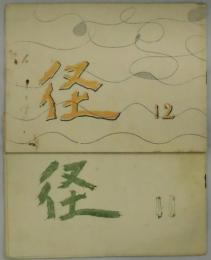 径 12
径 11